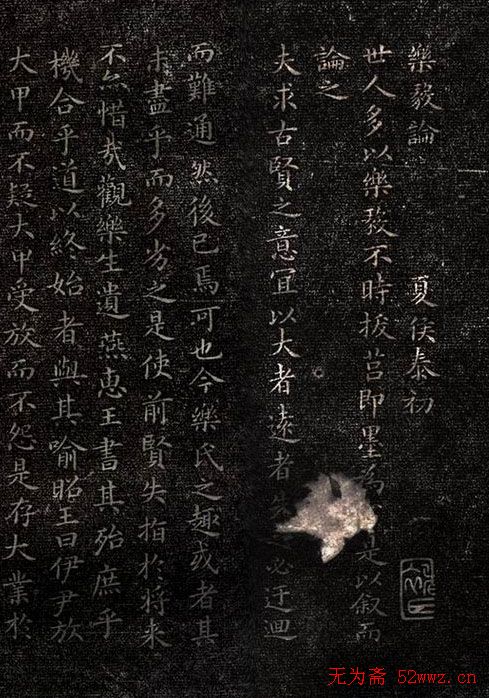 樂毅論 夏侯泰初
世人多以樂毅不時拔莒即墨為是以叙而
論之
夫求古賢之意宜以大者遠者先之必迂迴
而難通然後已焉可也今樂氏之趣或者其
未盡乎而多劣之是使前賢失指於將來
不亦惜哉觀樂生遺燕惠王書其殆庶乎
機合乎道以終始者與其喻昭王曰伊尹放
大甲而不疑大甲受放而不怨是存大業於
无为斋 52wwz.cn